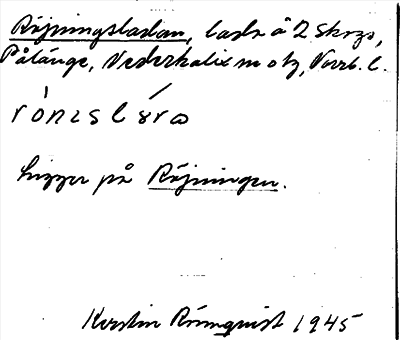 Röjningsladan, lada å 2 Skogs,
Pålänge, Nederkalix m otz, Norrb. l.
rö́nıslɑ́ra
Ligger på Röjningen.
Kerstin Rönnquist 1945